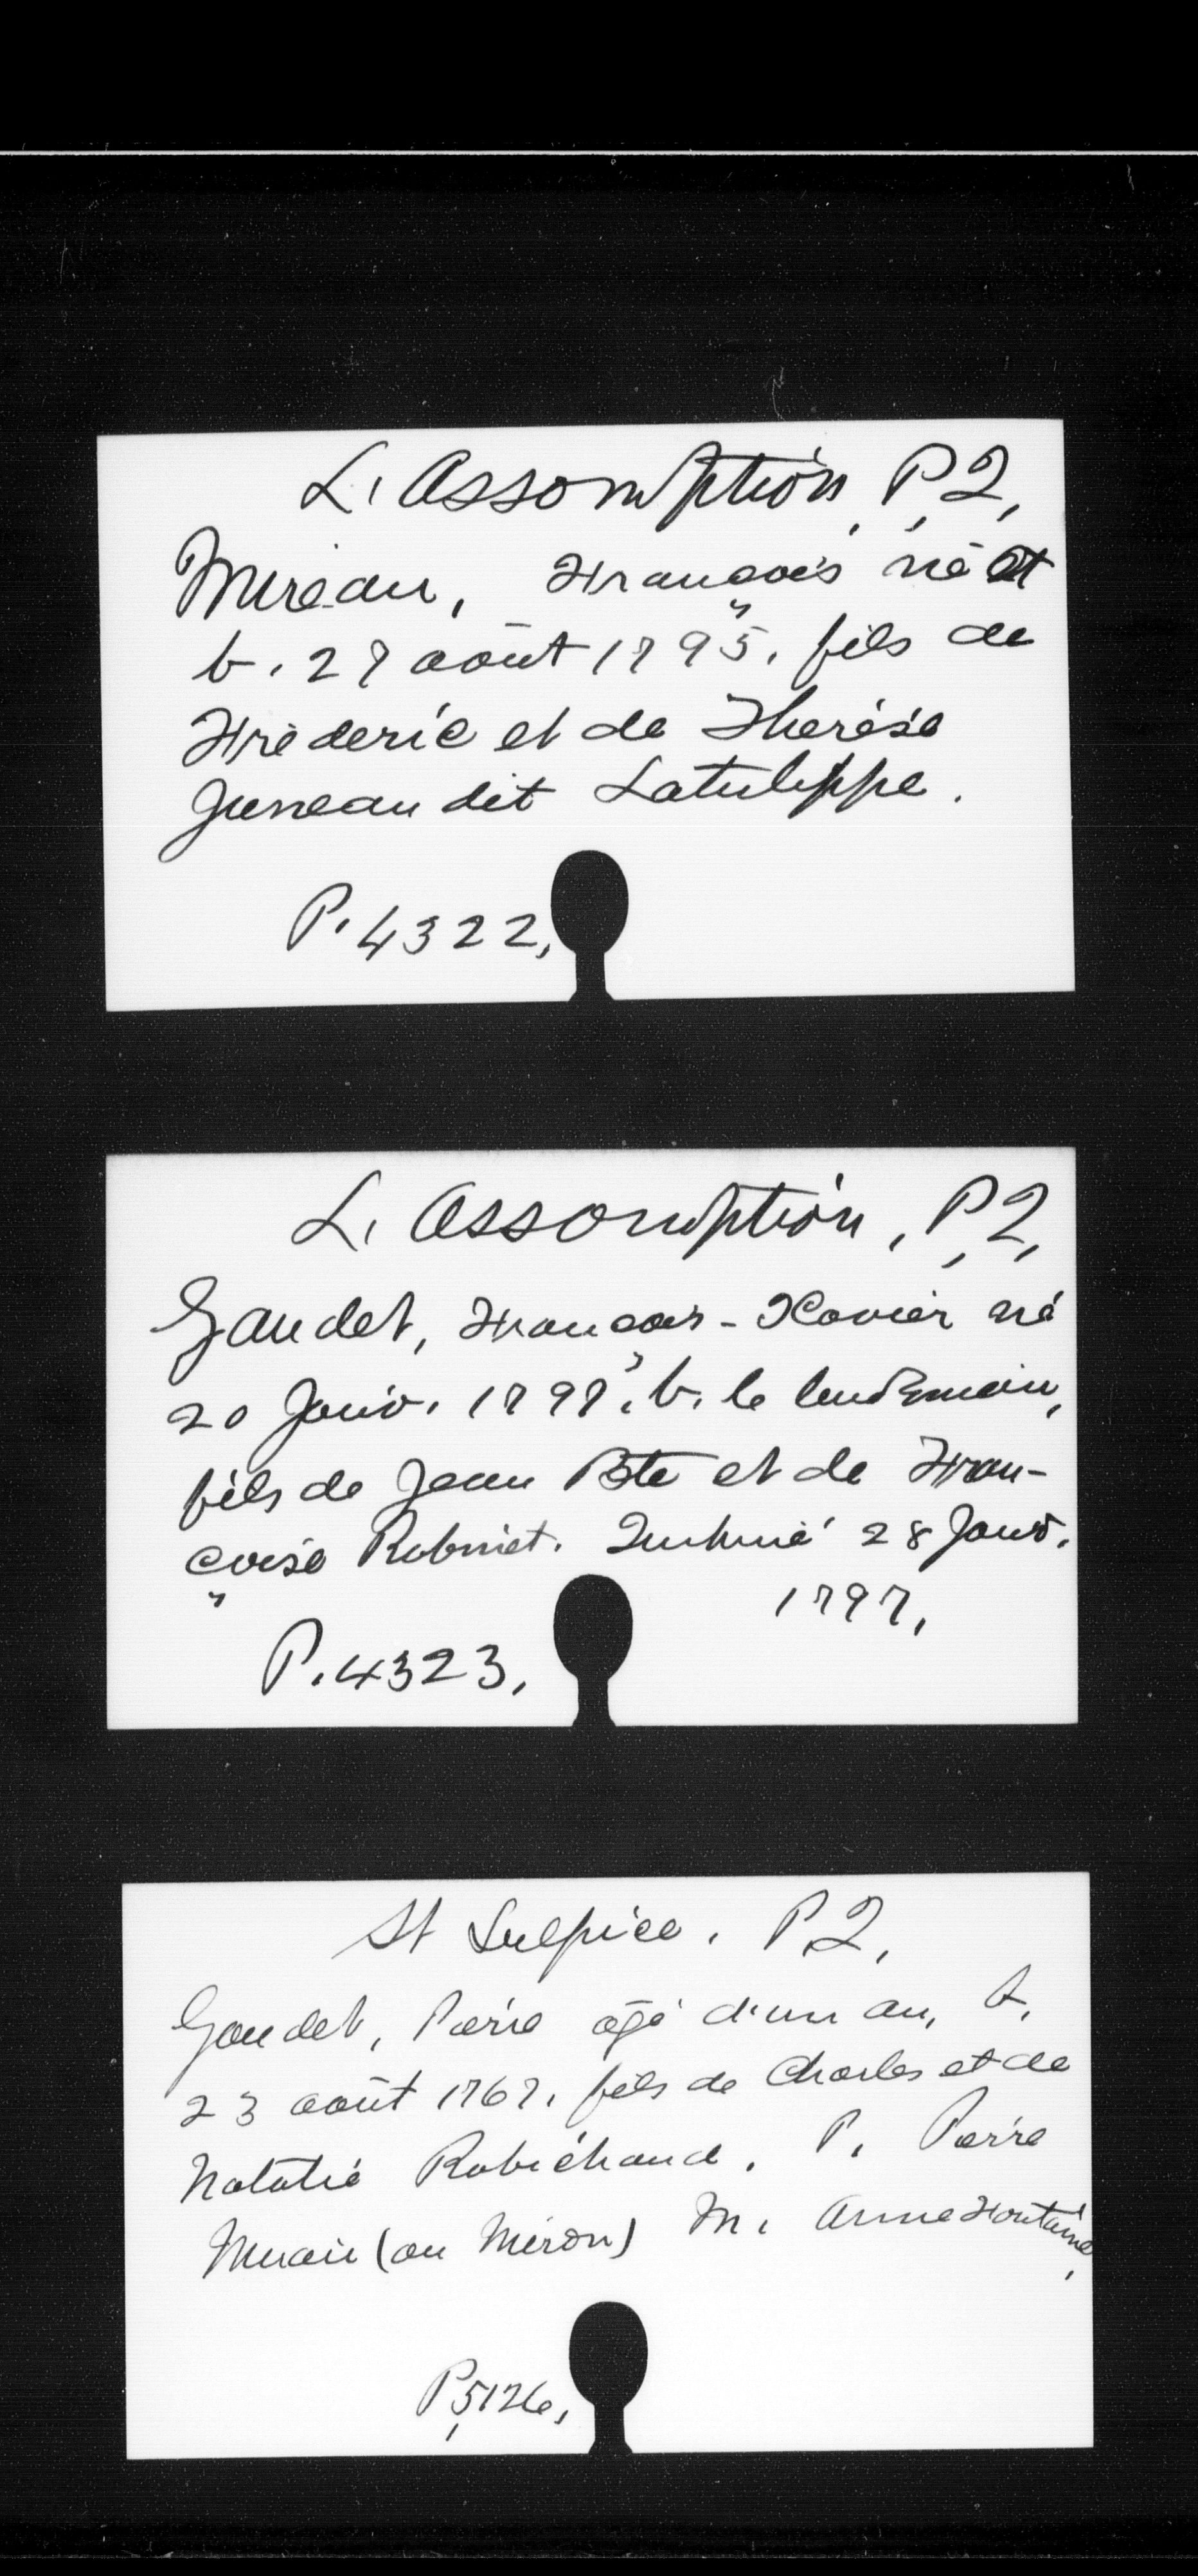 L'Assomption, P.2,
Mireau, François né et
b. 27 août 1795, fils de
Fréderic et de Therèse
Juneau dit Latulippe.
P.4322,
L'Assomption, P.2,
Gaudet, François-Xavier né
20 Janv. 1797, b. le lendemain,
fils de Jean Bte et de Fran-
çoise Robinet. Inhumé 28 Janv.
1797,
P.4323,
St Sulpice. P.2,
Gaudet, Pierre âgé d'un an, b.
23 août 1767, fils de Charles et de
Natalie Robichaud. P. Pierre
(ou Miron) M. Anne Fontaine,
P.5126,